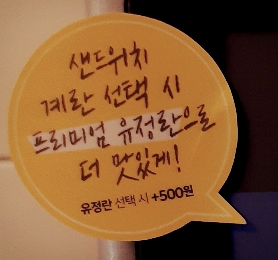 샌드위치
계란 선택 시
프리미엄 유정란으로
더 맛있게!
유정란 선택 시 +500원